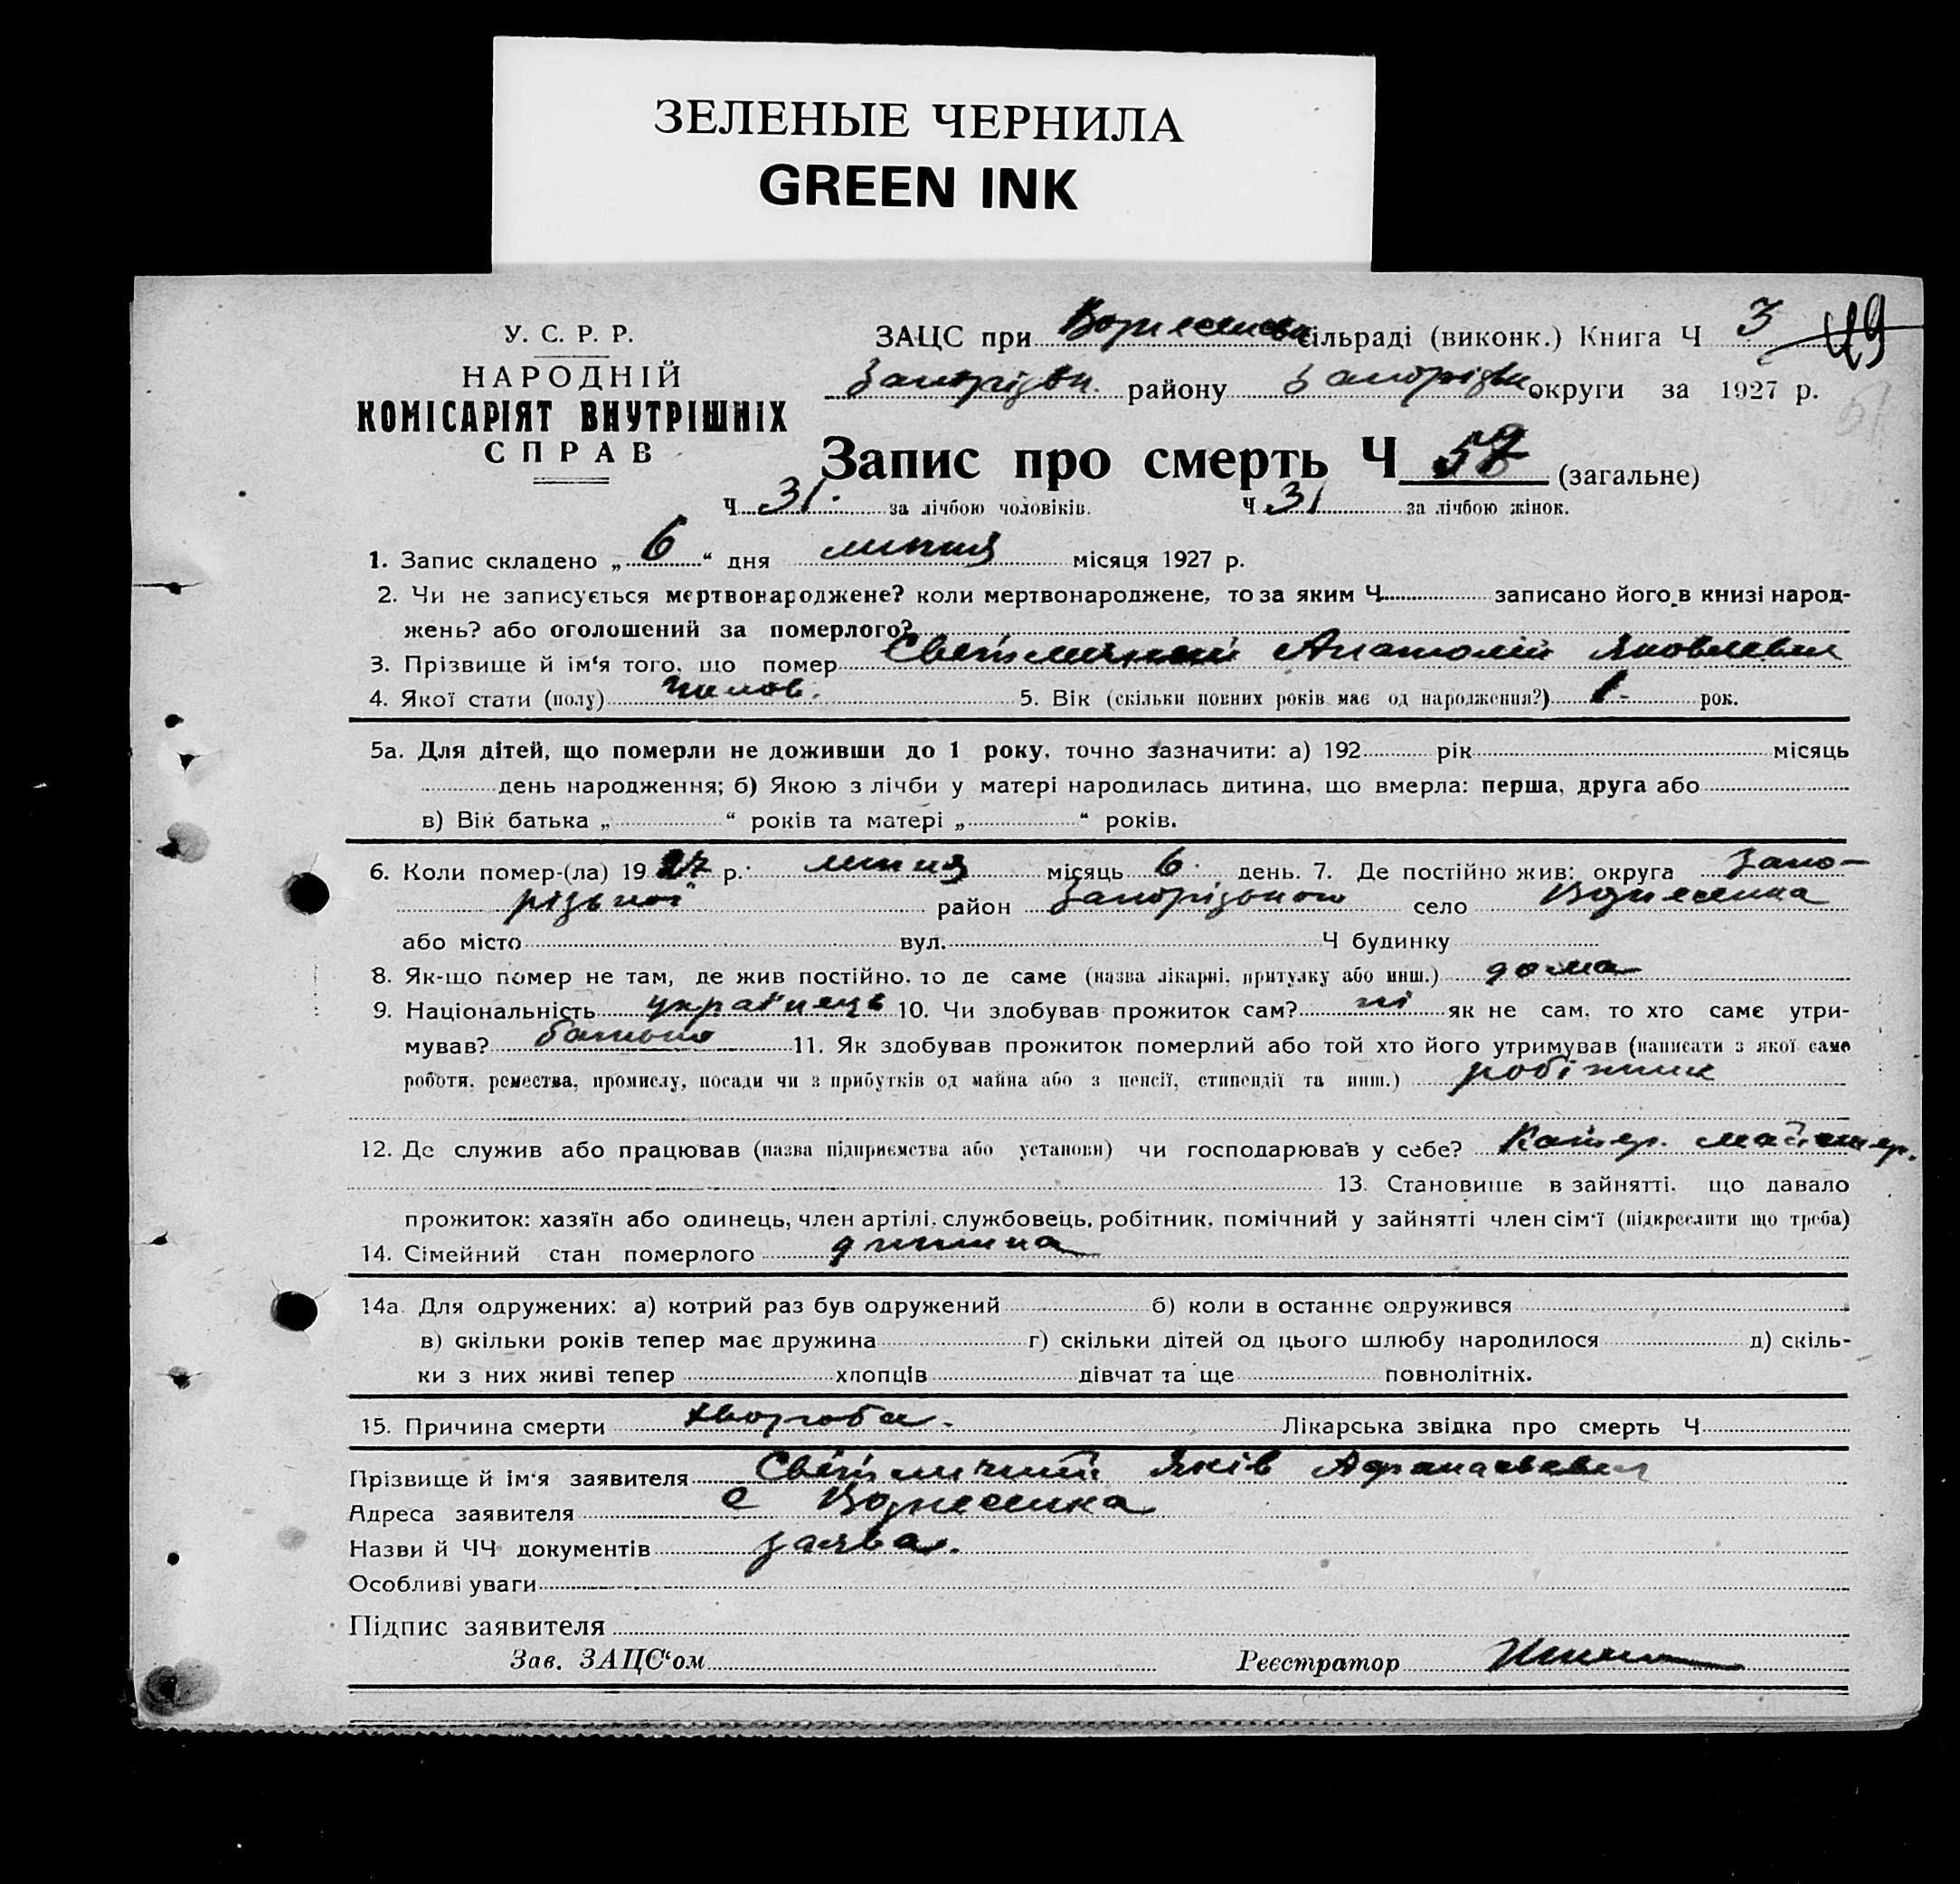 ЗЕЛЕНЫЕ ЧЕРНИЛА
GREEN INK
У. С. Р. Р.
НАРОДНІЙ
КОМІСАРІЯТ ВНУТРІШНІХ
СПРАВ
ЗАЦС при Вознесенськ сільраді (виконк.) Книга Ч 3 49
Запорізьк. району Запорізьк округи за 1927 р.
Запис про смерть Ч 57 (загальне)
Ч 31. за лічбою чоловіків. Ч 31 за лічбою жінок.
1. Запис складено „ 6 “ дня липня місяця 1927 р.
2. Чи не записується мертвонароджене? коли мертвонароджене, то за яким Ч. записано його в книзі народ-
жень? або оголошений за померлого?
3. Прізвище й ім‘я того, що помер Світличний Анатолій Яковлевич
4. Якої стати (полу) чолов. 5. Вік (скільки повних років має од народження?) 1 - рок.
5а. Для дітей, що померли не доживши до 1 року, точно зазначити: а) 192 рік місяць
день народження; б) Якою з лічби у матері народилась дитина, що вмерла: перша, друга або
в) Вік батька „ “ років та матері „ “ років.
6. Коли помер-(ла) 19 27 р. липня місяць 6 день. 7. Де постійно жив: округа Запо-
різької район Запорізького село Вознесенка
або місто вул. Ч будинку
8. Як-що помер не там, де жив постійно, то де саме (назва лікарні, притулку або инш.) дома
9. Національність українець 10. Чи здобував прожиток сам? ні як не сам, то хто саме утри-
мував? батько 11. Як здобував прожиток померлий або той хто його утримував (написати з якої саме
роботи, ремества, промислу, посади чи з прибутків од майна або з пенсії, стипендії та инш.) робітник
12. Де служив або працював (назва підприємства або установи) чи господарював у себе? Катер. майстер.
13. Становище в зайнятті, що давало
прожиток: хазяїн або одинець, член артілі, службовець, робітник, помічний у зайнятті член сім‘ї (підкреслити що треба)
14. Сімейний стан померлого дитина
14а. Для одружених: а) котрий раз був одружений б) коли в останнє одружився
в) скільки років тепер має дружина г) скільки дітей од цього шлюбу народилося д) скіль-
ки з них живі тепер хлопців дівчат та ще повнолітніх.
15. Причина смерти хвороба. Лікарська звідка про смерть Ч
Прізвище й ім‘я заявителя Світличний Яків Афанасьевич
Адреса заявителя с Вознесенка
Назви й ЧЧ документів заява.
Особливі уваги
Підпис заявителя
Зав. ЗАЦС‘ом Реєстратор